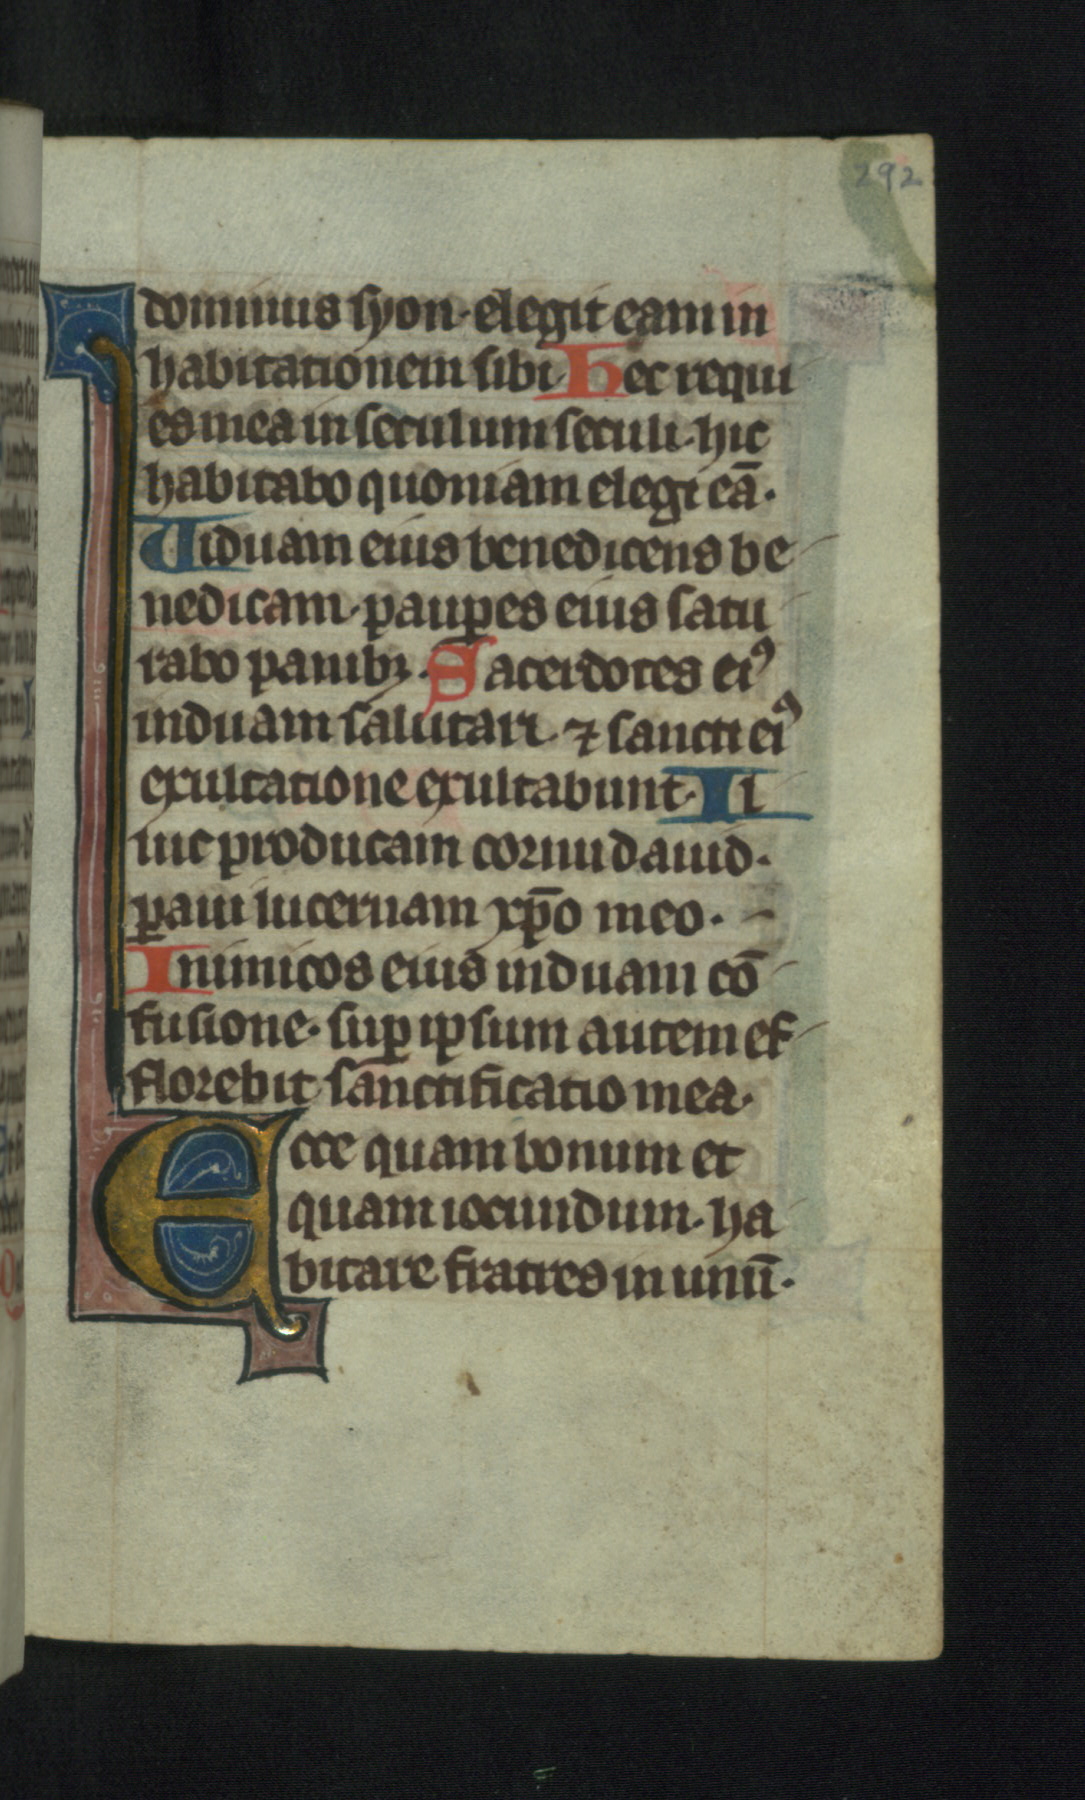 292
dominus syon· elegit eam in
habitationem sibi· Hec requi
es mea in seculum seculi· hic
habitabo quoniam elegi eā·
Uiduam eius benedicens be
nedicam· paup̄es eius satu
rabo panibꝫ· Sacerdotes eiꝰ
induam salutari· ⁊ sancti eiꝰ
exultatione exultabunt· Il
luc producam cornu dauid·
ꝑaui lucernam xp̄o meo·
Inimicos eius induam cō
fusione· suꝑ ipsum autem ef
florebit sanctificatio mea·
Ecce quam bonum et
quam iocundum· ha
bitare fratres in unū·